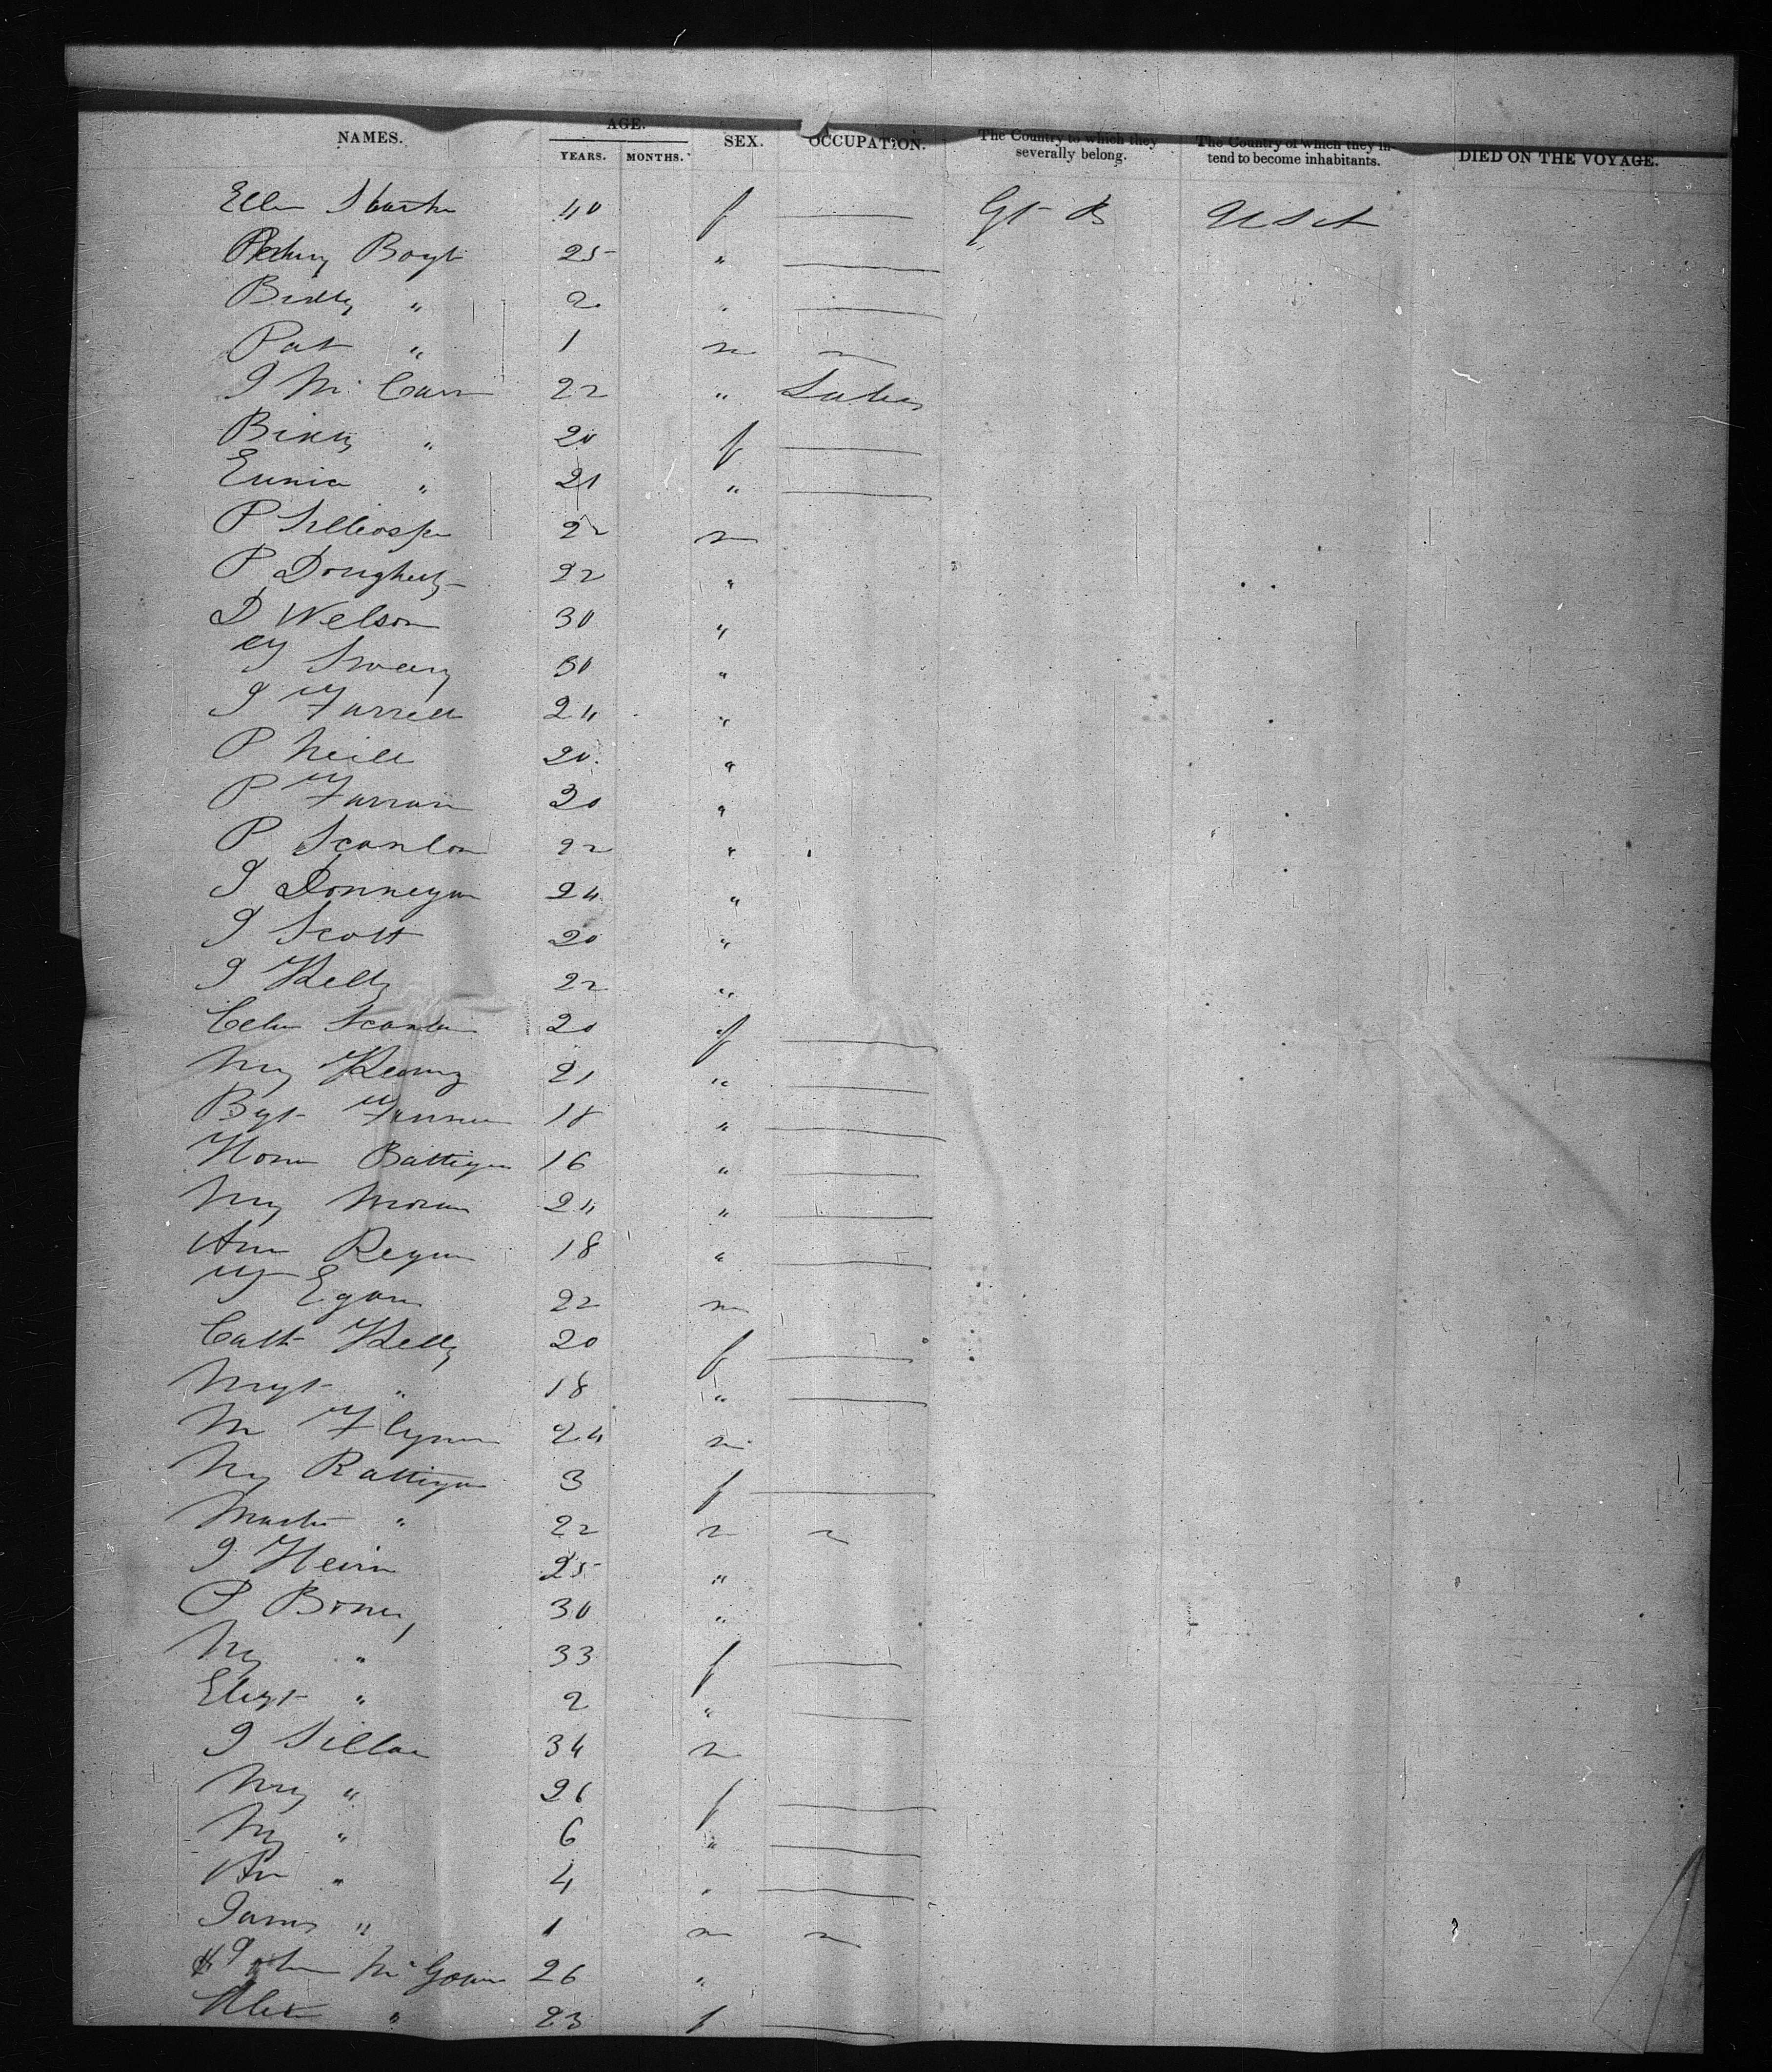 NAMES. AGE. SEX. OCCUPATION. The Country to which they severally belong. The Country of which they intend to become inhabitants. DIED ON THE VOYAGE.
YEARS. MONTHS.
Ellen 40 f — Gt B U S A
Boyle 25 " —
Biddy " 2 " —
Pat " 1 m
J Mc Cann 22 " Labor
Biddy " 20 f —
Eunice " 21 " —
P Gillespie 22 m
P Dougherty 22 "
D Welson 30 "
Sweeny 30 "
J Farrell 24 "
P Neill 20 "
P Farran 20 "
P Scanlon 22 "
J Donnegan 24 "
J Scott 20 "
J Kelly 22 "
Celia Scanlon 20 f —
My Keany 21 " —
Bgt 18 " —
Honor Battigan 16 " —
My Moran 24 " —
Ann Regan 18 " —
Egan 22 m
Cath Kelly 20 f —
Mrgt " 18 " —
M Flynn 24 m
My Rattigan 3 f —
Martin " 22 m
J 25 "
P Boner 30 "
My " 33 f —
Elizt " 2 " —
J 34 m
My " 26 f —
My " 6 " —
An " 4 " —
James " 1 m
John Mc Gowan 26 "
" 23 f —